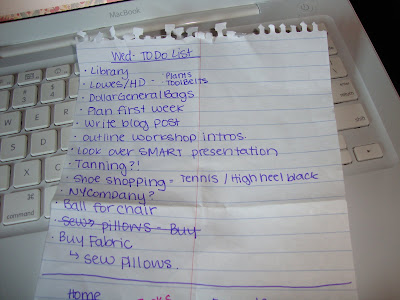 MacBook
Wed. TO DO List
· Library
· Lowes/HD - Plants
Toolbelts
· Dollar General Bags
· Plan first week
· Write blog post
· outline workshop intros.
· Look over SMART presentation
· Tanning?!
· Shoe shopping - Tennis / High heel black
· NYCompany?
· Ball for chair
· Sew pillows - Buy
· Buy Fabric
↳ sew pillows.
Home
control
option
command